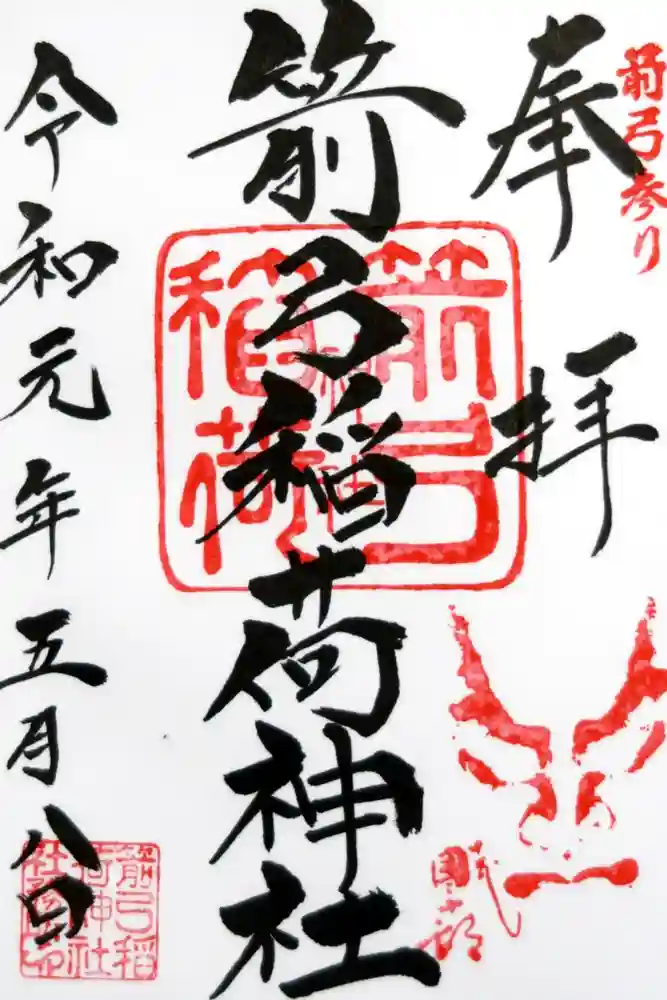 箭弓参り
奉拝
箭弓稲荷神社
箭弓
稲荷
神社
令和元年五月八日
箭弓稲
荷神社